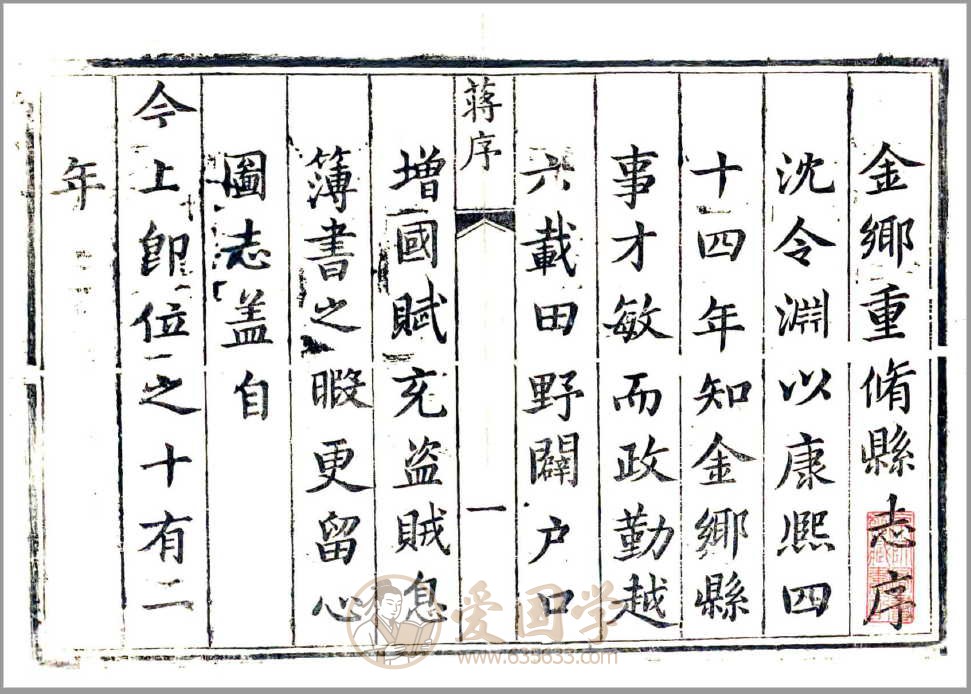 金鄉重脩縣志序
沈令淵以康熙四
十四年知金鄉縣
事才敏而政勤越
六載田野闢户口
蒋序
一
增國賦充盗賊息
簿書之暇更留心
圖志盖自
今上卽位之十有二
年
爱国学
www.635633.com